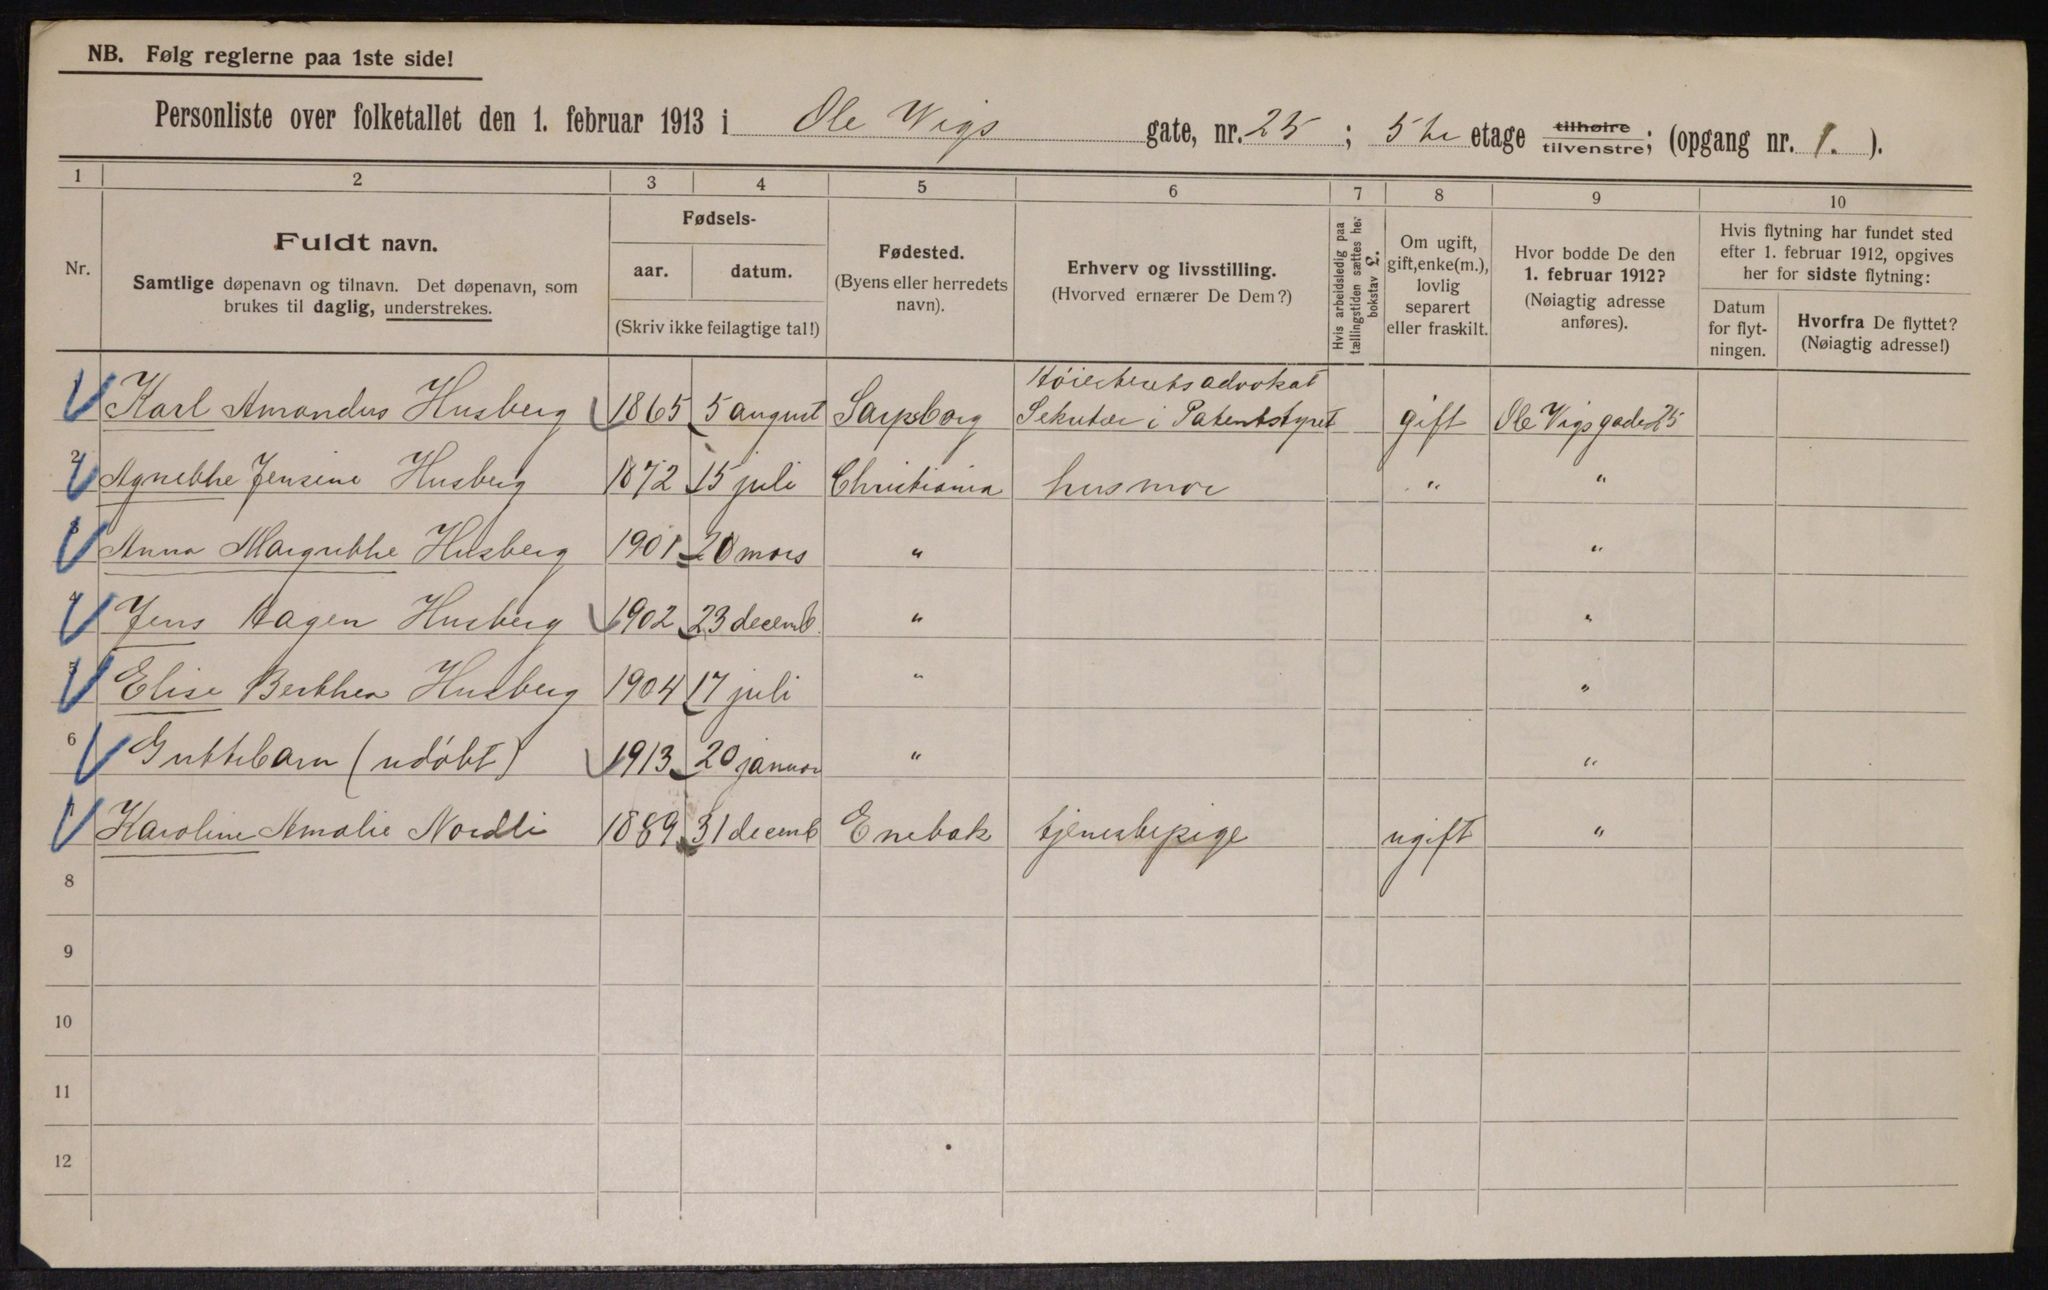 NB. Følg reglerne paa 1ste side!
Personliste over folketallet den 1. februar 1913 i Ole Vigs gate, nr. 25; 5te etage tilhøire tilvenstre; (opgang nr. 1.).
1 2 3 4 5 6 7 8 9 10
Nr.
Fuldt navn.
Samtlige døpenavn og tilnavn. Det døpenavn, som
brukes til daglig, understrekes.
Fødsels-
aar. datum.
(Skriv ikke feilagtige tal!)
Fødested.
(Byens eller herredets
navn).
Erhverv og livsstilling.
(Hvorved ernærer De Dem?)
Hvis arbeidsledig paa
tællingstiden sættes her
bokstav L.
Om ugift,
gift, enke(m.),
lovlig
separert
eller fraskilt.
Hvor bodde De den
1. februar 1912?
(Nøiagtig adresse
anføres).
Hvis flytning har fundet sted
efter 1. februar 1912, opgives
her for sidste flytning:
Datum
for flyt-
ningen.
Hvorfra De flyttet?
(Nøiagtig adresse!)
1 Karl Amandus Husberg 1865 5 august Sarpsborg Høiesteretsadvokat
Sekretær i Patentstyret gift Ole Vigsgade 25
2 Agnethe Jensine Husberg 1872 15 juli Christiania husmor " "
3 Anna Margrethe Husberg 1901 20 mars " "
4 Jens Hagen Husberg 1902 23 decemb. " "
5 Elise Berthea Husberg 1904 17 juli " "
6 Guttebarn (udöbt) 1913 20 januar " "
7 Karoline Amalie Nordli 1889 31 decemb Enebak tjenestepige ugift "
8
9
10
11
12